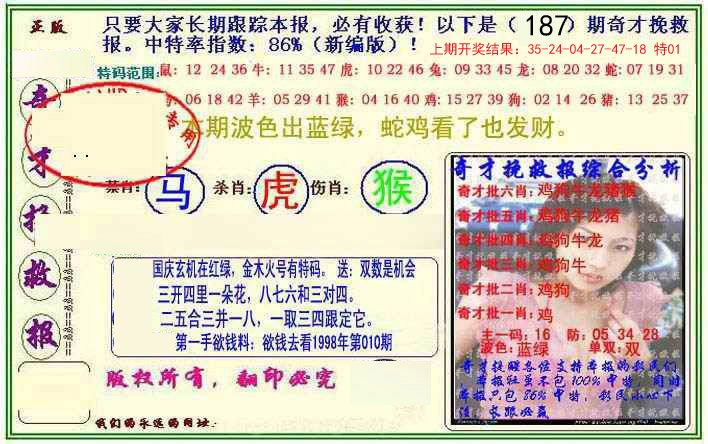 正版
只要大家长期跟踪本报，必有收获！以下是（187）期奇才挽救
报。中特率指数：86%（新编版）！
上期开奖结果：35-24-04-27-47-18 特01
特码范围：鼠：12 24 36 牛：11 35 47 虎：10 22 46 兔：09 33 45 龙：08 20 32 蛇：07 19 31
06 18 42 羊：05 29 41 猴：04 16 40 鸡：15 27 39 狗：02 14 26 猪：13 25 37
本期波色出蓝绿，蛇鸡看了也发财。
专用
奇才挽救报
禁肖：马 杀肖：虎 伤肖：猴
国庆玄机在红绿，金木火号有特码。 送：双数是机会
三开四里一朵花，八七六和三对四。
二五合三并一八，一取三四跟定它。
第一手欲钱料：欲钱去看1998年第010期
版权所有，翻印必究
我们的永远的网址：
奇才挽救报综合分析
奇才批六肖：鸡狗牛龙猪猴
奇才批五肖：鸡狗牛龙猪
奇才批四肖：鸡狗牛龙
奇才批三肖：鸡狗牛
奇才批二肖：鸡狗
奇才批一肖：鸡
主一码：16 防：05 34 28
波色：蓝绿 单双：双
奇才提醒各位支持本报的彩民们
本报驻虽不包100%中特，同时
本报只包86%中特，彩民小心下
注，长跟必赢